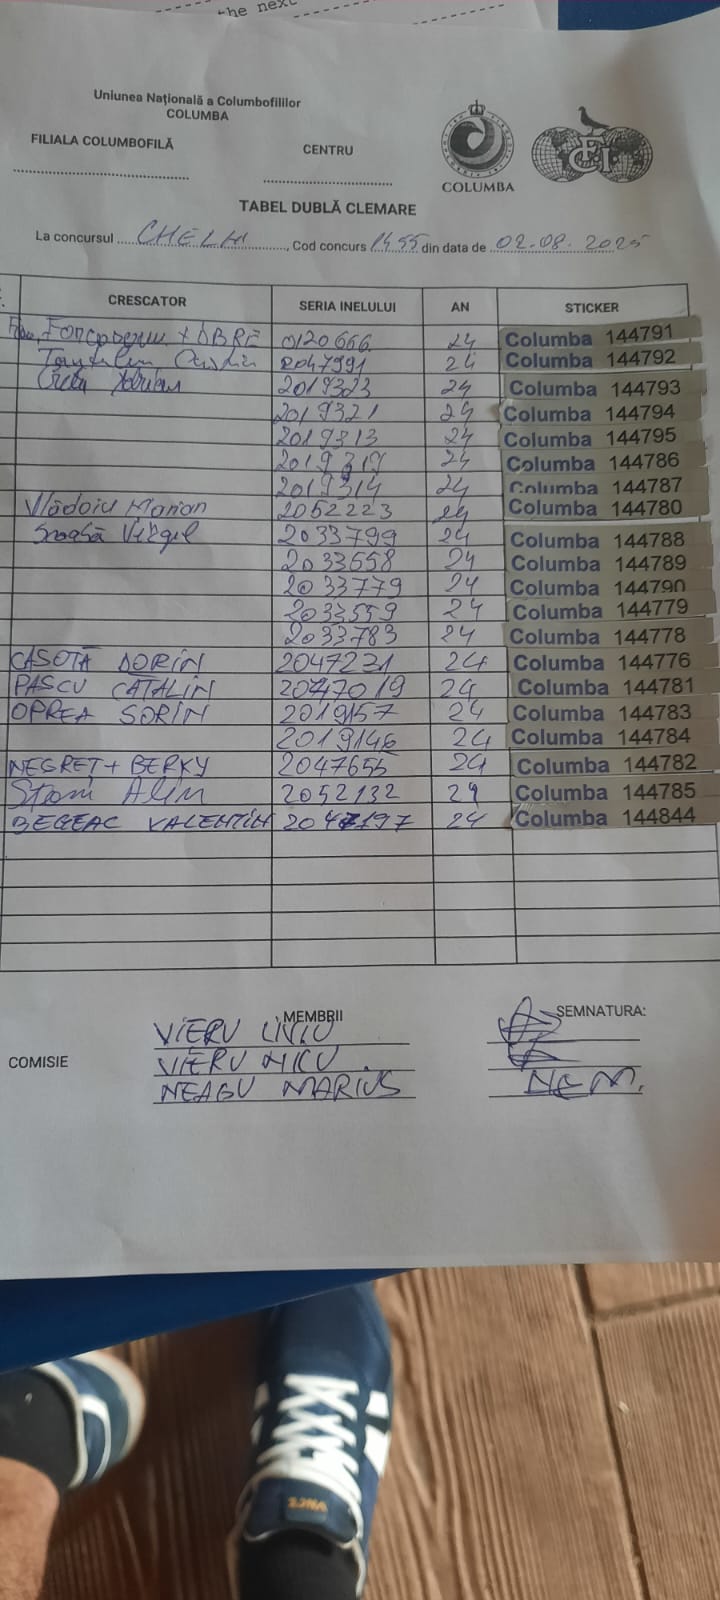 the next
Uniunea Națională a Columbofililor
COLUMBA
FILIALA COLUMBOFILĂ
CENTRU
COLUMBA
FCI
TABEL DUBLĂ CLEMARE
La concursul CHELM, Cod concurs 1455 din data de 02.08.2025
CRESCATOR SERIA INELULUI AN STICKER
+ DBRE 0120666 24 Columba 144791
2047991 24 Columba 144792
Adrian 2019323 24 Columba 144793
2019321 24 Columba 144794
2019313 24 Columba 144795
2019319 24 Columba 144786
2019314 24 Columba 144787
Vlădoiu Marian 2052223 24 Columba 144780
Virgil 2033799 24 Columba 144788
2033558 24 Columba 144789
2033779 24 Columba 144790
2033559 24 Columba 144779
2033783 24 Columba 144778
CASOTĂ DORIN 2047231 24 Columba 144776
PASCU CATALIN 2047019 24 Columba 144781
OPREA SORIN 2019157 24 Columba 144783
2019146 24 Columba 144784
NEGREȚ + BERKY 2047655 24 Columba 144782
Stan Alin 2052132 24 Columba 144785
BEGEAC VALENTIN 2047197 24 Columba 144844
MEMBRII SEMNATURA:
VIERU LIVIU
COMISIE
VIERU NICU
NEAGU MARIUS NEM.